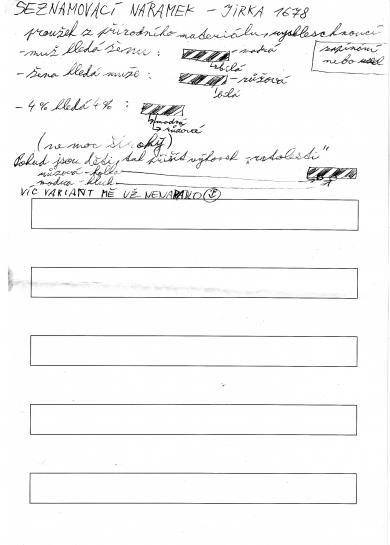 SEZNAMOVACÍ NÁRAMEK - JIRKA 1678
proužek z přírodního materiálu, rychleschnoucí
- muž hledá ženu : modrá
bílá
zapínání
nebo uzel
- žena hledá muže : růžová
bílá
- 4% hledá 4% :
modrá
růžová
(ne moc široký)
Pokud jsou děti, tak přišít výhonek "ratolesti"
růžová - holka
modrá - kluk
VÍC VARIANT MĚ UŽ NENAPADLO